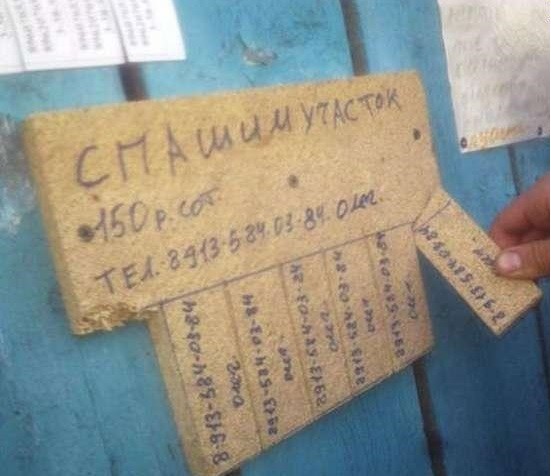 СПАШИМ УЧАСТОК
150 р. сот.
ТЕЛ. 8913-584-03-84. Олег.
8-913-584-03-84
олег.
8913-584-03-84
олег.
8913-584-03-84
олег.
8913-584-03-84
олег
8913-584-03-84
олег
8-913-584-03-84
олег.